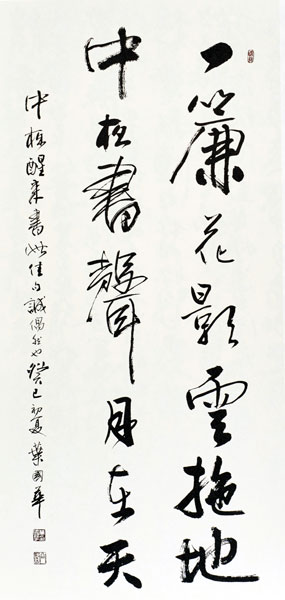 一簾花影雲拖地
中夜書聲月在天
中夜醒來書此佳句誠偶然也癸巳初夏葉國華